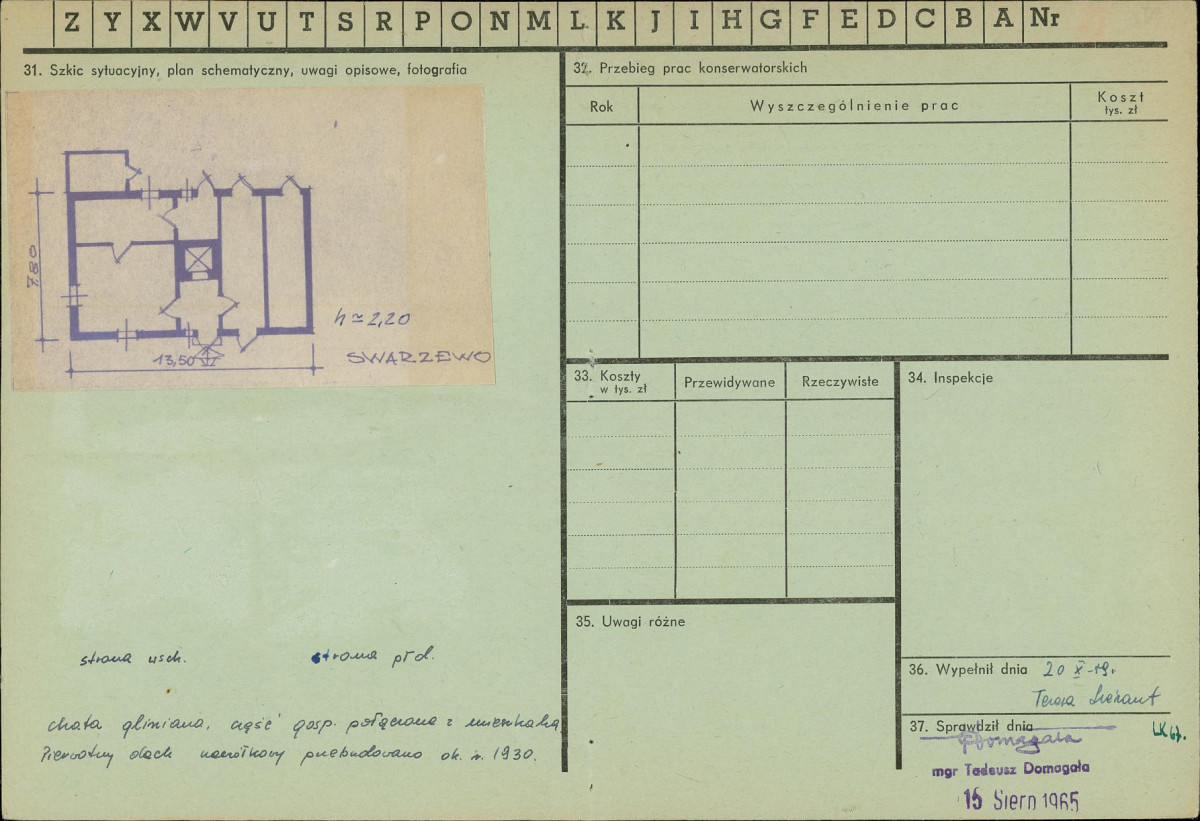 Z Y X W V U T S R P O N M L K J I H G F E D C B A Nr
31. Szkic sytuacyjny, plan schematyczny, uwagi opisowe, fotografia
7.80
13,50
h ≃ 2,20
SWARZEWO
strona wsch.
strona płd.
chata gliniana, część gosp. połączona z mieszkalną
Pierwotny dach naczółkowy przebudowano ok. r. 1930.
32. Przebieg prac konserwatorskich
Rok
Wyszczególnienie prac
Koszt
tys. zł
33. Koszty
w tys. zł
Przewidywane
Rzeczywiste
34. Inspekcje
35. Uwagi różne
36. Wypełnił dnia 20 X
Teresa
37. Sprawdził dnia
TDomagała
mgr Tadeusz Domagała
15 Sierp 1965